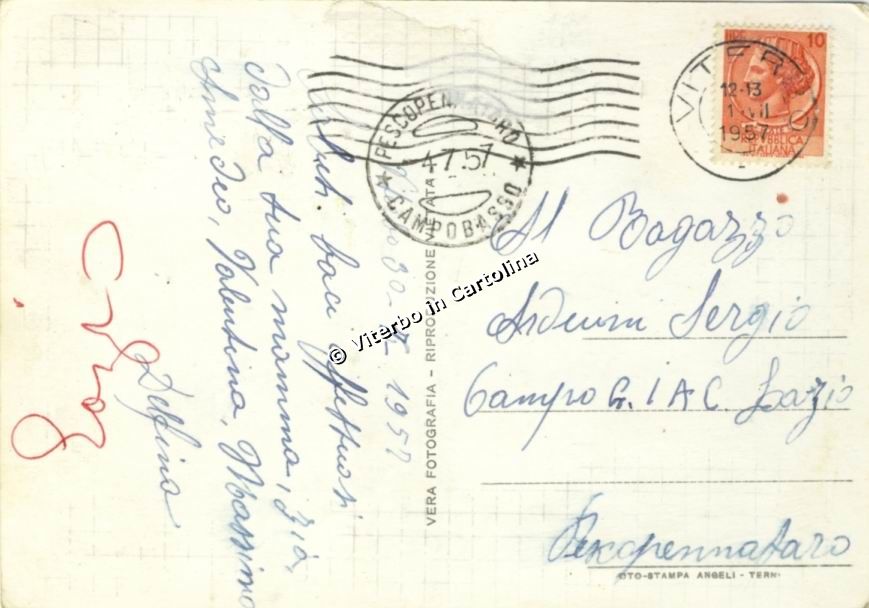 LIRE 10
VITER
12-13
1·VII
1957
POSTE
REPUBBLICA
ITALIANA
PESCOPENNATARO
4.7.57
CAMPOBASSO
30-VI 1957
baci affettuosi
Dalla tua mamma, zia,
Amedeo, Valentina, Massimo
Delfina
VERA FOTOGRAFIA - RIPRODUZIONE VIETATA
© Viterbo in Cartolina
Al Ragazzo
Sergio
Campo G. I A C. Lazio
Pescopennataro
OTO-STAMPA ANGELI - TERNI